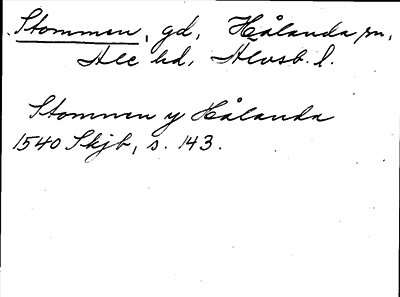 Stommen, gd, Hålanda sn,
Ale hd, Älvsb. l.
Stommen y Hålanda
1540 Skjb, s. 143.